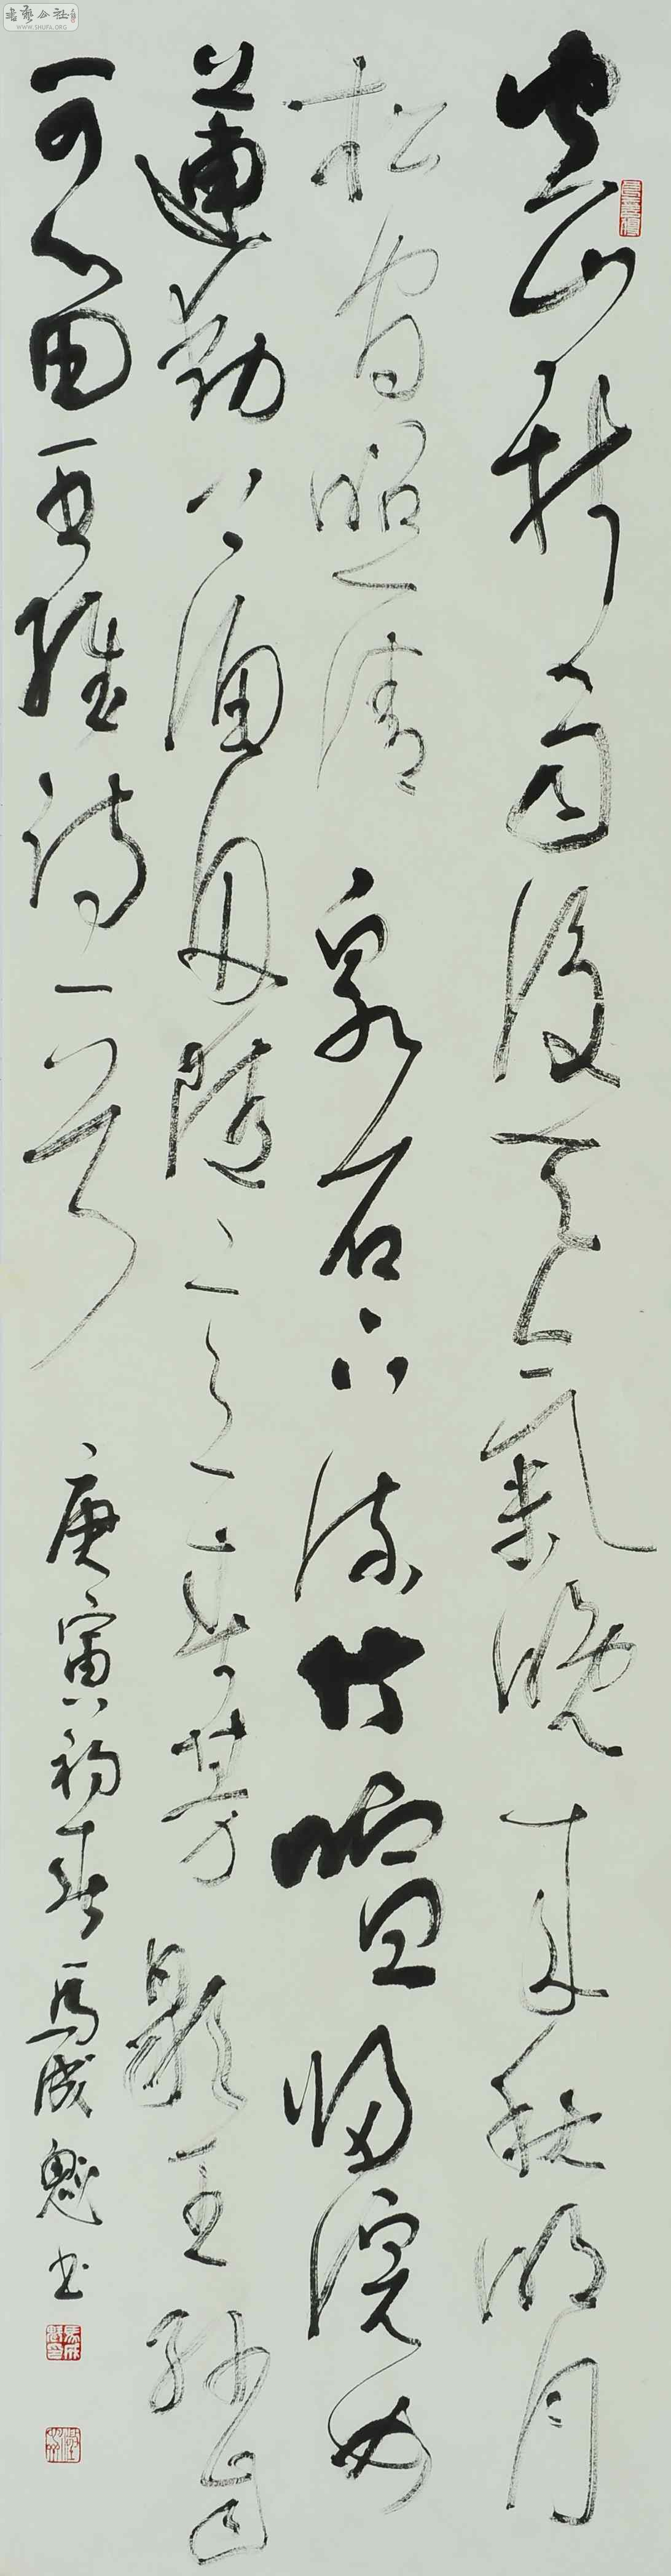 空山新雨後天氣晚來秋明月
松間照清泉石上流竹喧歸浣女
蓮動下漁舟隨意春芳歇王孫自
可留王維詩一首 庚寅初春馬成魁书
書藝公社
WWW.SHUFA.ORG